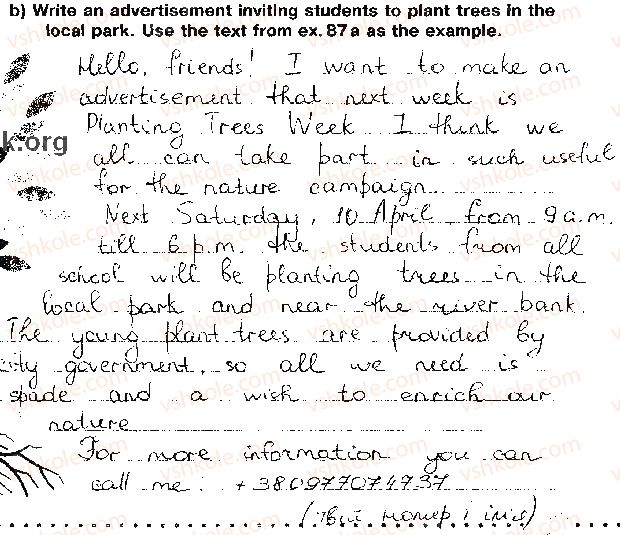 b) Write an advertisement inviting students to plant trees in the
local park. Use the text from ex. 87a as the example.
Hello, friends! I want to make an
advertisement that next week is
Planting Trees Week. I think we
k.org
all can take part in such useful
for the nature campaign.
Next Saturday, 10 April from 9 a.m.
till 6 p.m. the students from all
school will be planting trees in the
local park and near the river bank.
The young plant trees are provided by
city government, so all we need is
spade and a wish to enrich our
nature
For more information you can
call me: +380977074937
(твій номер і ім'я)